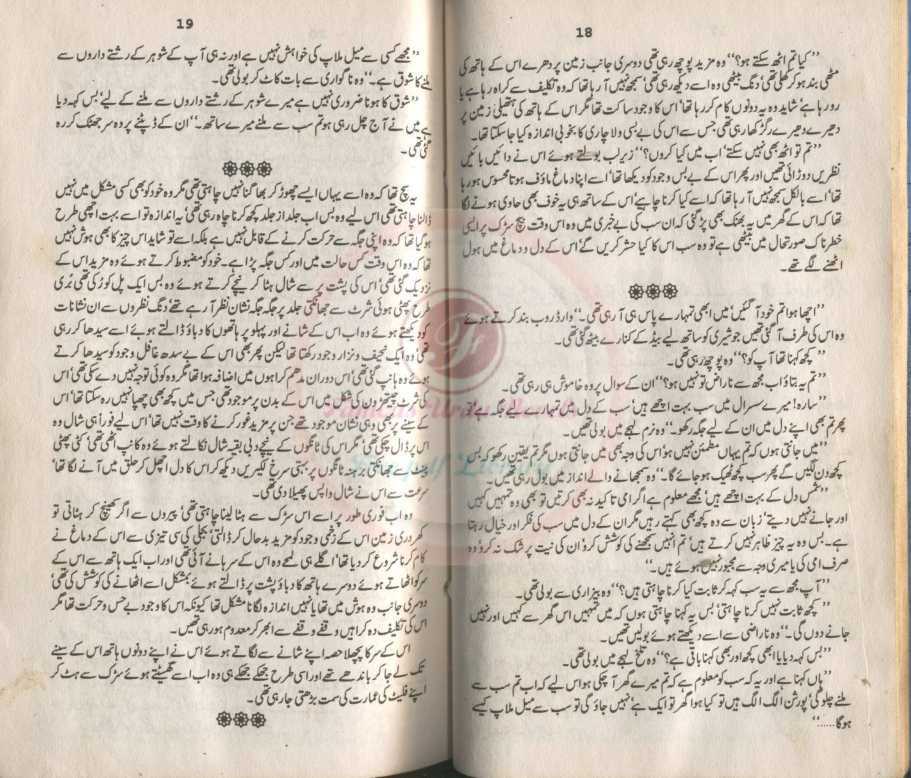 18
”کیا تم اٹھ سکتے ہو؟“ وہ مزید پوچھ رہی تھی دوسری جانب زمین پر دھرے اس کے ہاتھ کی
مٹھی بند ہو کر کھلی تھی‘ دنگ بیٹھی وہ اسے دیکھ رہی تھی‘ سمجھ نہیں آ رہا تھا کہ وہ تکلیف سے کراہ رہا ہے یا
رو رہا ہے‘ شاید وہ یہ دونوں کام کر رہا تھا‘ اس کا وجود ساکت تھا مگر اس کے ہاتھ کی ہتھیلی زمین پر
دھیرے دھیرے رگڑ کھا رہی تھی جس سے اس کی بے بسی و لاچاری کا بخوبی اندازہ کیا جا سکتا تھا۔
”تم تو اٹھ بھی نہیں سکتے‘ اب میں کیا کروں؟“ زیر لب بولتے ہوئے اس نے دائیں بائیں
نظریں دوڑائی تھیں اور پھر اس کے بے بس وجود کو دیکھا تھا‘ اسے اپنا دماغ ماؤف ہوتا محسوس ہو رہا
تھا‘ اسے بالکل سمجھ نہیں آ رہا تھا کہ اسے کیا کرنا چاہیے‘ اس کے ساتھ ہی یہ خوف بھی حاوی ہونے لگا
تھا کہ اس کے گھر میں یہ بھنک بھی پڑ گئی کہ ان سب کی بے خبری میں وہ اس وقت بیچ سڑک پر ایسی
خطرناک صورتحال میں بیٹھی ہے تو وہ سب اس کا کیا حشر کریں گے‘ اس کے دل و دماغ میں ہول
اٹھنے لگے تھے۔
”اچھا ہوا تم خود آ گئیں‘ میں ابھی تمہارے پاس ہی آ رہی تھی۔“ وارڈروب بند کرتے ہوئے
وہ اس کی طرف آ گئی تھیں جو شیری کو ساتھ لیے بیڈ کے کنارے بیٹھ گئی تھی۔
”کچھ کہنا تھا آپ کو؟“ وہ پوچھ رہی تھی۔
”تم یہ بتاؤ اب مجھ سے ناراض تو نہیں ہو؟“ ان کے سوال پر وہ خاموش ہی رہی تھی۔
”سارہ! میرے سسرال میں سب بہت اچھے ہیں‘ سب کے دل میں تمہارے لیے جگہ ہے‘
پھر تم بھی اپنے دل میں ان کے لیے جگہ رکھو۔“ وہ نرم لہجے میں بولی تھیں۔
”میں جانتی ہوں کہ تم یہاں مطمئن نہیں ہو‘ اس کی وجہ بھی میں جانتی ہوں مگر تم یقین رکھو کہ بس
کچھ دن لگیں گے پھر سب کچھ ٹھیک ہو جائے گا۔“ وہ سمجھانے والے انداز میں بول رہی تھیں۔
”شمس دل کے بہت اچھے ہیں‘ مجھے معلوم ہے اگر امی تاکید نہ بھی کرتیں تو بھی وہ تمہیں کہیں
اور جانے نہیں دیتے‘ زبان سے وہ کچھ بھی کہتے رہیں مگر ان کے دل میں سب کی فکر اور خیال رہتا
ہے۔ بس وہ یہ چیز ظاہر نہیں کرتے ہیں‘ تم انہیں سمجھنے کی کوشش کرو‘ ان کی نیت پر شک نہ کرو‘ وہ
صرف امی کی یا میری وجہ سے مجبور نہیں ہوئے ہیں۔“
”آپ مجھ سے یہ سب کہہ کر ثابت کیا کرنا چاہتی ہیں؟“ وہ بیزاری سے بولی تھی۔
”کچھ ثابت نہیں کرنا چاہتی‘ بس یہ کہنا چاہتی ہوں کہ میں تمہیں اس گھر سے کہیں اور نہیں
جانے دوں گی۔“ وہ ناراضی سے اسے دیکھتے ہوئے بولیں تھیں۔
”بس کہہ دیا یا ابھی کچھ اور بھی کہنا باقی ہے؟“ وہ تلخ لہجے میں بولی تھی۔
”ہاں کہنا ہے اور یہ کہ سب کو معلوم ہے کہ تم میرے گھر آ چکی ہو اس لیے کہ اب تم سب سے
ملنے چلو گی‘ پورشن الگ الگ ہیں تو کیا ہوا گھر تو ایک ہے‘ نہیں جاؤ گی تو سب سے میل ملاپ کیسے
ہوگا......“
19
”مجھے کسی سے میل ملاپ کی خواہش نہیں ہے اور نہ ہی آپ کے شوہر کے رشتے داروں سے
ملنے کا شوق ہے۔“ وہ ناگواری سے بات کاٹ کر بولی تھی۔
”شوق کا ہونا ضروری نہیں ہے میرے شوہر کے رشتے داروں سے ملنے کے لیے‘ بس کہہ دیا
ہے میں نے آج چل رہی ہو تم سب سے ملنے میرے ساتھ۔“ ان کے ڈپٹنے پر وہ سر جھٹک کر رہ
گئی تھی۔
یہ سچ تھا کہ وہ اسے یہاں ایسے چھوڑ کر بھاگنا نہیں چاہتی تھی مگر وہ خود کو بھی کسی مشکل میں نہیں
ڈالنا چاہتی تھی اس لیے وہ بس اب جلد از جلد کچھ کرنا چاہ رہی تھی‘ یہ اندازہ تو اسے بہت اچھی طرح
ہو گیا تھا کہ وہ اپنی جگہ سے حرکت کرنے کے قابل نہیں ہے بلکہ اسے تو شاید اس چیز کا بھی ہوش نہیں
تھا کہ وہ اس وقت کس حالت میں اور کس جگہ پڑا ہے۔ خود کو مضبوط کرتے ہوئے وہ مزید اس کے
نزدیک گئی تھی‘ اس کی پشت پر سے شال ہٹا کر نیچے کرتے ہوئے وہ بس ایک پل کو رکی تھی‘ بُری
طرح پھٹی ہوئی شرٹ سے جھانکتی جلد پر جگہ جگہ نشان نظر آ رہے تھے‘ دنگ نظروں سے ان نشانات
کو دیکھتے ہوئے وہ اب اس کے شانے اور پہلو پر ہاتھوں کا دباؤ ڈالتے ہوئے اسے سیدھا کر رہی
تھی‘ وہ ایک نحیف و نزار وجود رکھتا تھا لیکن پھر بھی اس کے بے سدھ غافل وجود کو سیدھا کرتے
ہوئے وہ ہانپ گئی تھی‘ اس دوران مدھم کراہوں میں اضافہ ہوا تھا مگر وہ کوئی توجہ نہیں دے سکی تھی‘ اس
کی شرٹ چیتھڑوں کی شکل میں اس کے بدن پر موجود تھی جس میں کچھ بھی چھپا نہیں رہ سکتا تھا‘ اس
کے سینے پر بھی وہی نشان موجود تھے جن پر مزید غور کرنے کا وقت نہیں تھا‘ اس لیے فوراً ہی شال وہ
اس پر ڈال چکی تھی‘ مگر اس کی ٹانگوں کے نیچے دبی بقیہ شال نکالتے ہوئے وہ کانپ اٹھی تھی‘ کئی پھٹی
پینٹ سے جھانکتی برہنہ ٹانگوں پر بہتی سرخ لکیریں دیکھ کر اس کا دل اچھل کر حلق میں آنے لگا تھا‘
سرعت سے اس نے شال واپس پھیلا دی تھی۔
وہ اب فوری طور پر اسے اس سڑک سے ہٹا لینا چاہتی تھی‘ پیروں سے اگر کھینچ کر ہٹاتی تو
کھردری زمین اس کے زخمی وجود کو مزید بدحال کر ڈالتی‘ بجلی کی سی تیزی سے اس کے دماغ نے
کام کرنا شروع کر دیا تھا‘ اگلے ہی لمحے وہ اس کے سرہانے آئی تھی اور اب ایک ہاتھ سے اس کے
سر کو اٹھاتے ہوئے دوسرے ہاتھ کا دباؤ پشت پر ڈالتے ہوئے بمشکل اسے اٹھانے کی کوشش کی تھی‘
دوسری جانب وہ ہوش میں تھا یا نہیں اندازہ لگانا مشکل تھا کیونکہ اس کا وجود بے حس و حرکت تھا مگر
اس کی تکلیف دہ کراہیں وقفے وقفے سے ابھر کر معدوم ہو رہی تھیں۔
اس کے سر کا پچھلا حصہ اپنے شانے سے لگاتے ہوئے اس نے اپنے دونوں ہاتھ اس کے سینے
تک لے جا کر باندھے تھے اور اسی طرح جھکے جھکے ہی وہ اب اسے گھسیٹتے ہوئے سڑک سے ہٹ کر
اپنے فلیٹ کی عمارت کی سمت بڑھتی جا رہی تھی۔